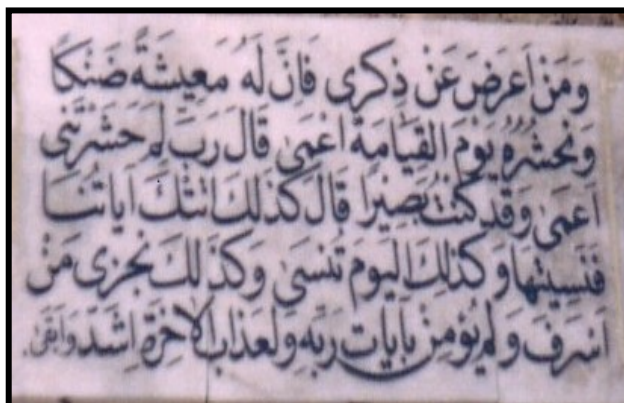 وَمَنْ اَعرَضَ عَنْ ذِكرى فَاِنَّ لَهُ مَعِيشَةً ضَنْكًا
وَنَحْشُرُهُ يَوْمَ القِيَامَةِ اَعْمَى قَالَ رَبِّ لِمَ حَشَرْتَنِى
اَعمَى وَقَد كُنْتُ بَصِيْرًا قَالَ كَذلِكَ اَتَتْكَ اٰيَاتُنَا
فَنَسِيتَهَا وَكَذلِكَ اليَومَ تُنسَى وَكَذلِكَ نَجْزِى مَنْ
اَسْرَفَ وَلَم يُؤمِنْ بِاٰيَاتِ رَبِّهِ وَلَعَذَابُ الاٰخِرَةِ اَشَدُّ وَاَبْقَى